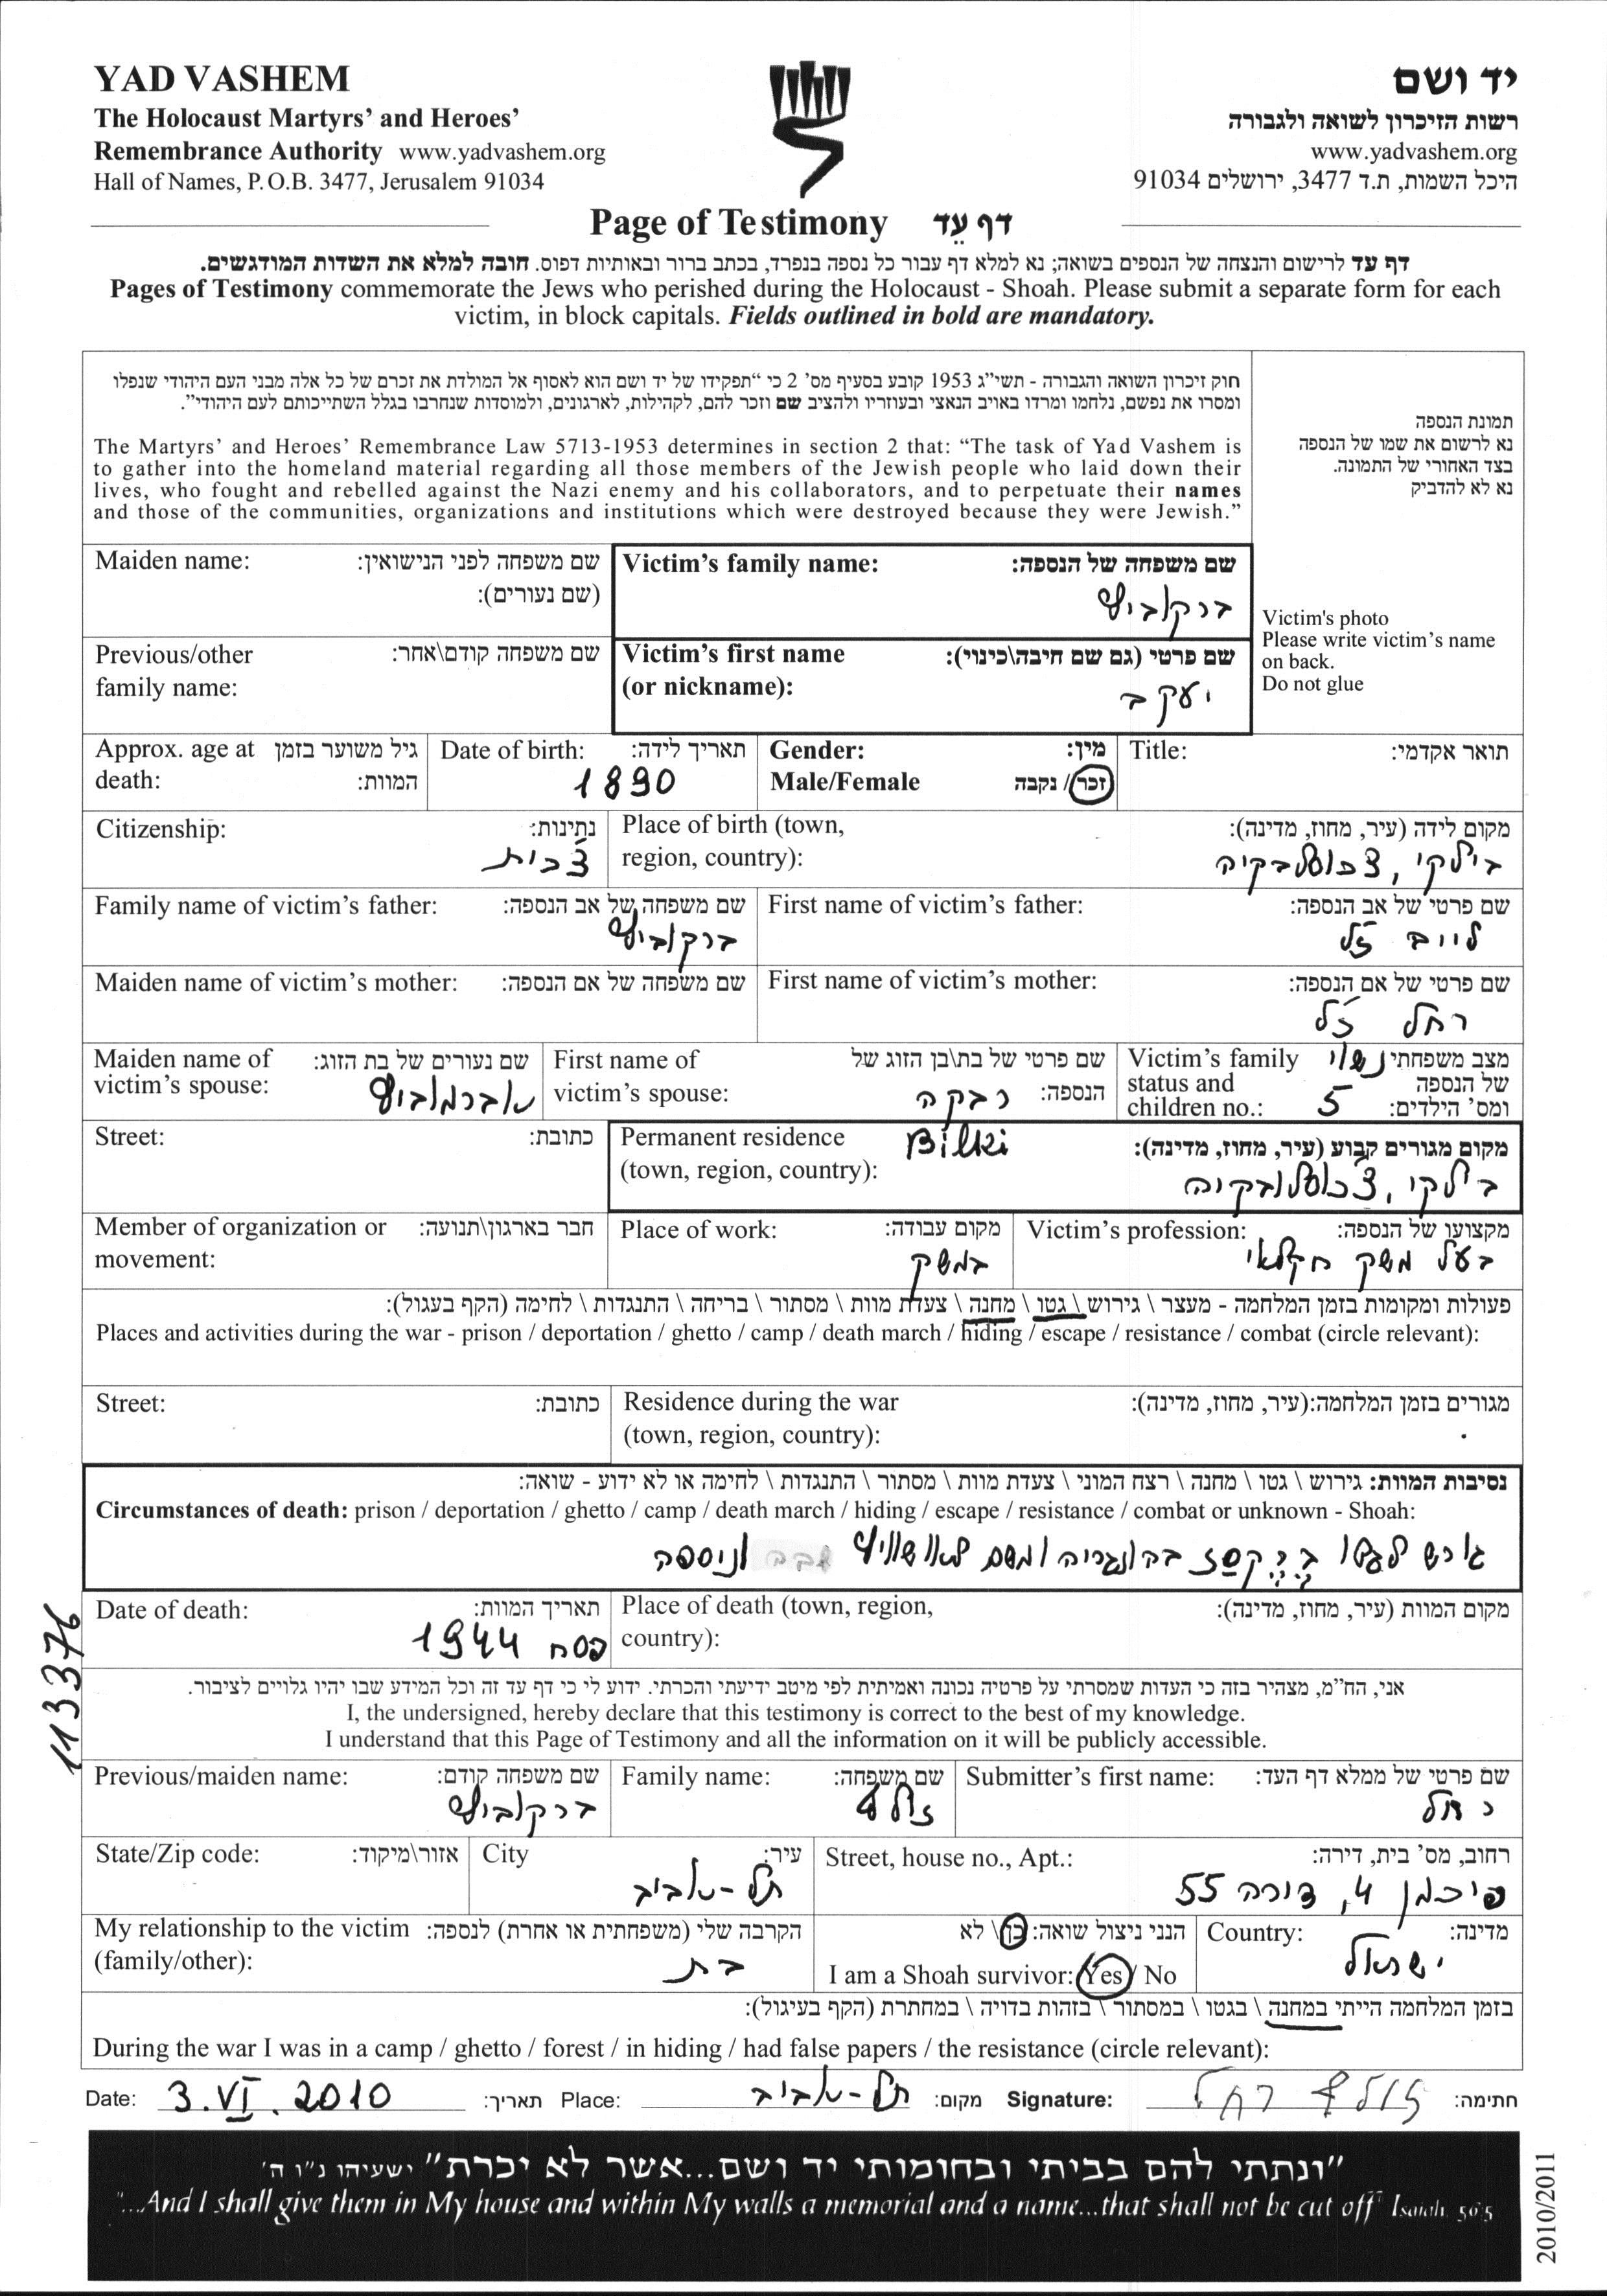 YAD VASHEM
The Holocaust Martyrs' and Heroes'
Remembrance Authority www.yadvashem.org
Hall of Names, P.O.B. 3477, Jerusalem 91034
יד ושם
רשות הזיכרון לשואה ולגבורה
www.yadvashem.org
היכל השמות, ת.ד 3477, ירושלים 91034
Page of Testimony דף עֵד
דף עד לרישום והנצחה של הנספים בשואה; נא למלא דף עבור כל נספה בנפרד, בכתב ברור ובאותיות דפוס. חובה למלא את השדות המודגשים.
Pages of Testimony commemorate the Jews who perished during the Holocaust - Shoah. Please submit a separate form for each
victim, in block capitals. Fields outlined in bold are mandatory.
חוק זיכרון השואה והגבורה - תשי"ג 1953 קובע בסעיף מס' 2 כי "תפקידו של יד ושם הוא לאסוף אל המולדת את זכרם של כל אלה מבני העם היהודי שנפלו
ומסרו את נפשם, נלחמו ומרדו באויב הנאצי ובעוזריו ולהציב שם וזכר להם, לקהילות, לארגונים, ולמוסדות שנחרבו בגלל השתייכותם לעם היהודי".
The Martyrs' and Heroes' Remembrance Law 5713-1953 determines in section 2 that: "The task of Yad Vashem is
to gather into the homeland material regarding all those members of the Jewish people who laid down their
lives, who fought and rebelled against the Nazi enemy and his collaborators, and to perpetuate their names
and those of the communities, organizations and institutions which were destroyed because they were Jewish."
תמונת הנספה
נא לרשום את שמו של הנספה
בצד האחורי של התמונה.
נא לא להדביק
Victim's photo
Please write victim's name
on back.
Do not glue
Maiden name: שם משפחה לפני הנישואין:
(שם נעורים):
Victim's family name: שם משפחה של הנספה:
ברקוביץ
Previous/other שם משפחה קודם\אחר:
family name:
Victim's first name שם פרטי (גם שם חיבה\כינוי):
(or nickname): יעקב
Approx. age at גיל משוער בזמן
death: המוות:
Date of birth: תאריך לידה:
1890
Gender: מין:
Male/Female זכר / נקבה
Title: תואר אקדמי:
Citizenship: נתינות:
צ'כית
Place of birth (town, מקום לידה (עיר, מחוז, מדינה):
region, country): בילקי, צ'כוסלובקיה
Family name of victim's father: שם משפחה של אב הנספה:
ברקוביץ
First name of victim's father: שם פרטי של אב הנספה:
לייב ז"ל
Maiden name of victim's mother: שם משפחה של אם הנספה:
First name of victim's mother: שם פרטי של אם הנספה:
רחל ז"ל
Maiden name of שם נעורים של בת הזוג:
victim's spouse: אברמוביץ
First name of שם פרטי של בת\בן הזוג של
victim's spouse: הנספה: רבקה
Victim's family מצב משפחתי נשוי
status and של הנספה
children no.: ומס' הילדים: 5
Street: כתובת:
Permanent residence Bilki מקום מגורים קבוע (עיר, מחוז, מדינה):
(town, region, country): בילקי, צ'כוסלובקיה
Member of organization or חבר בארגון\תנועה:
movement:
Place of work: מקום עבודה:
במשק
Victim's profession: מקצועו של הנספה:
בעל משק חקלאי
פעולות ומקומות בזמן המלחמה - מעצר \ גירוש \ גטו \ מחנה \ צעדת מוות \ מסתור \ בריחה \ התנגדות \ לחימה (הקף בעגול):
Places and activities during the war - prison / deportation / ghetto / camp / death march / hiding / escape / resistance / combat (circle relevant):
Street: כתובת:
Residence during the war מגורים בזמן המלחמה:(עיר, מחוז, מדינה):
(town, region, country):
נסיבות המוות: גירוש \ גטו \ מחנה \ רצח המוני \ צעדת מוות \ מסתור \ התנגדות \ לחימה או לא ידוע - שואה:
Circumstances of death: prison / deportation / ghetto / camp / death march / hiding / escape / resistance / combat or unknown - Shoah:
גורש לגטו בהונגריה ומשם לאושוויץ וניספה
Date of death: תאריך המוות:
פסח 1944
Place of death (town, region, מקום המוות (עיר, מחוז, מדינה):
country):
113376
אני, הח"מ, מצהיר בזה כי העדות שמסרתי על פרטיה נכונה ואמיתית לפי מיטב ידיעתי והכרתי. ידוע לי כי דף עד זה וכל המידע שבו יהיו גלויים לציבור.
I, the undersigned, hereby declare that this testimony is correct to the best of my knowledge.
I understand that this Page of Testimony and all the information on it will be publicly accessible.
Previous/maiden name: שם משפחה קודם:
ברקוביץ
Family name: שם משפחה:
Submitter's first name: שם פרטי של ממלא דף העד:
רחל
State/Zip code: אזור\מיקוד:
City עיר:
תל-אביב
Street, house no., Apt.: רחוב, מס' בית, דירה:
פיכמן 4, דירה 55
My relationship to the victim הקרבה שלי (משפחתית או אחרת) לנספה:
(family/other): בת
הנני ניצול שואה: כן \ לא
I am a Shoah survivor: Yes / No
Country: מדינה:
ישראל
בזמן המלחמה הייתי במחנה \ בגטו \ במסתור \ בזהות בדויה \ במחתרת (הקף בעיגול):
During the war I was in a camp / ghetto / forest / in hiding / had false papers / the resistance (circle relevant):
Date: 3.VI.2010 תאריך: Place: תל-אביב מקום: Signature: רחל חתימה:
"ונתתי להם בביתי ובחומותי יד ושם...אשר לא יכרת" ישעיהו נ"ו ה'
"...And I shall give them in My house and within My walls a memorial and a name...that shall not be cut off" Isaiah 56:5
2010/2011